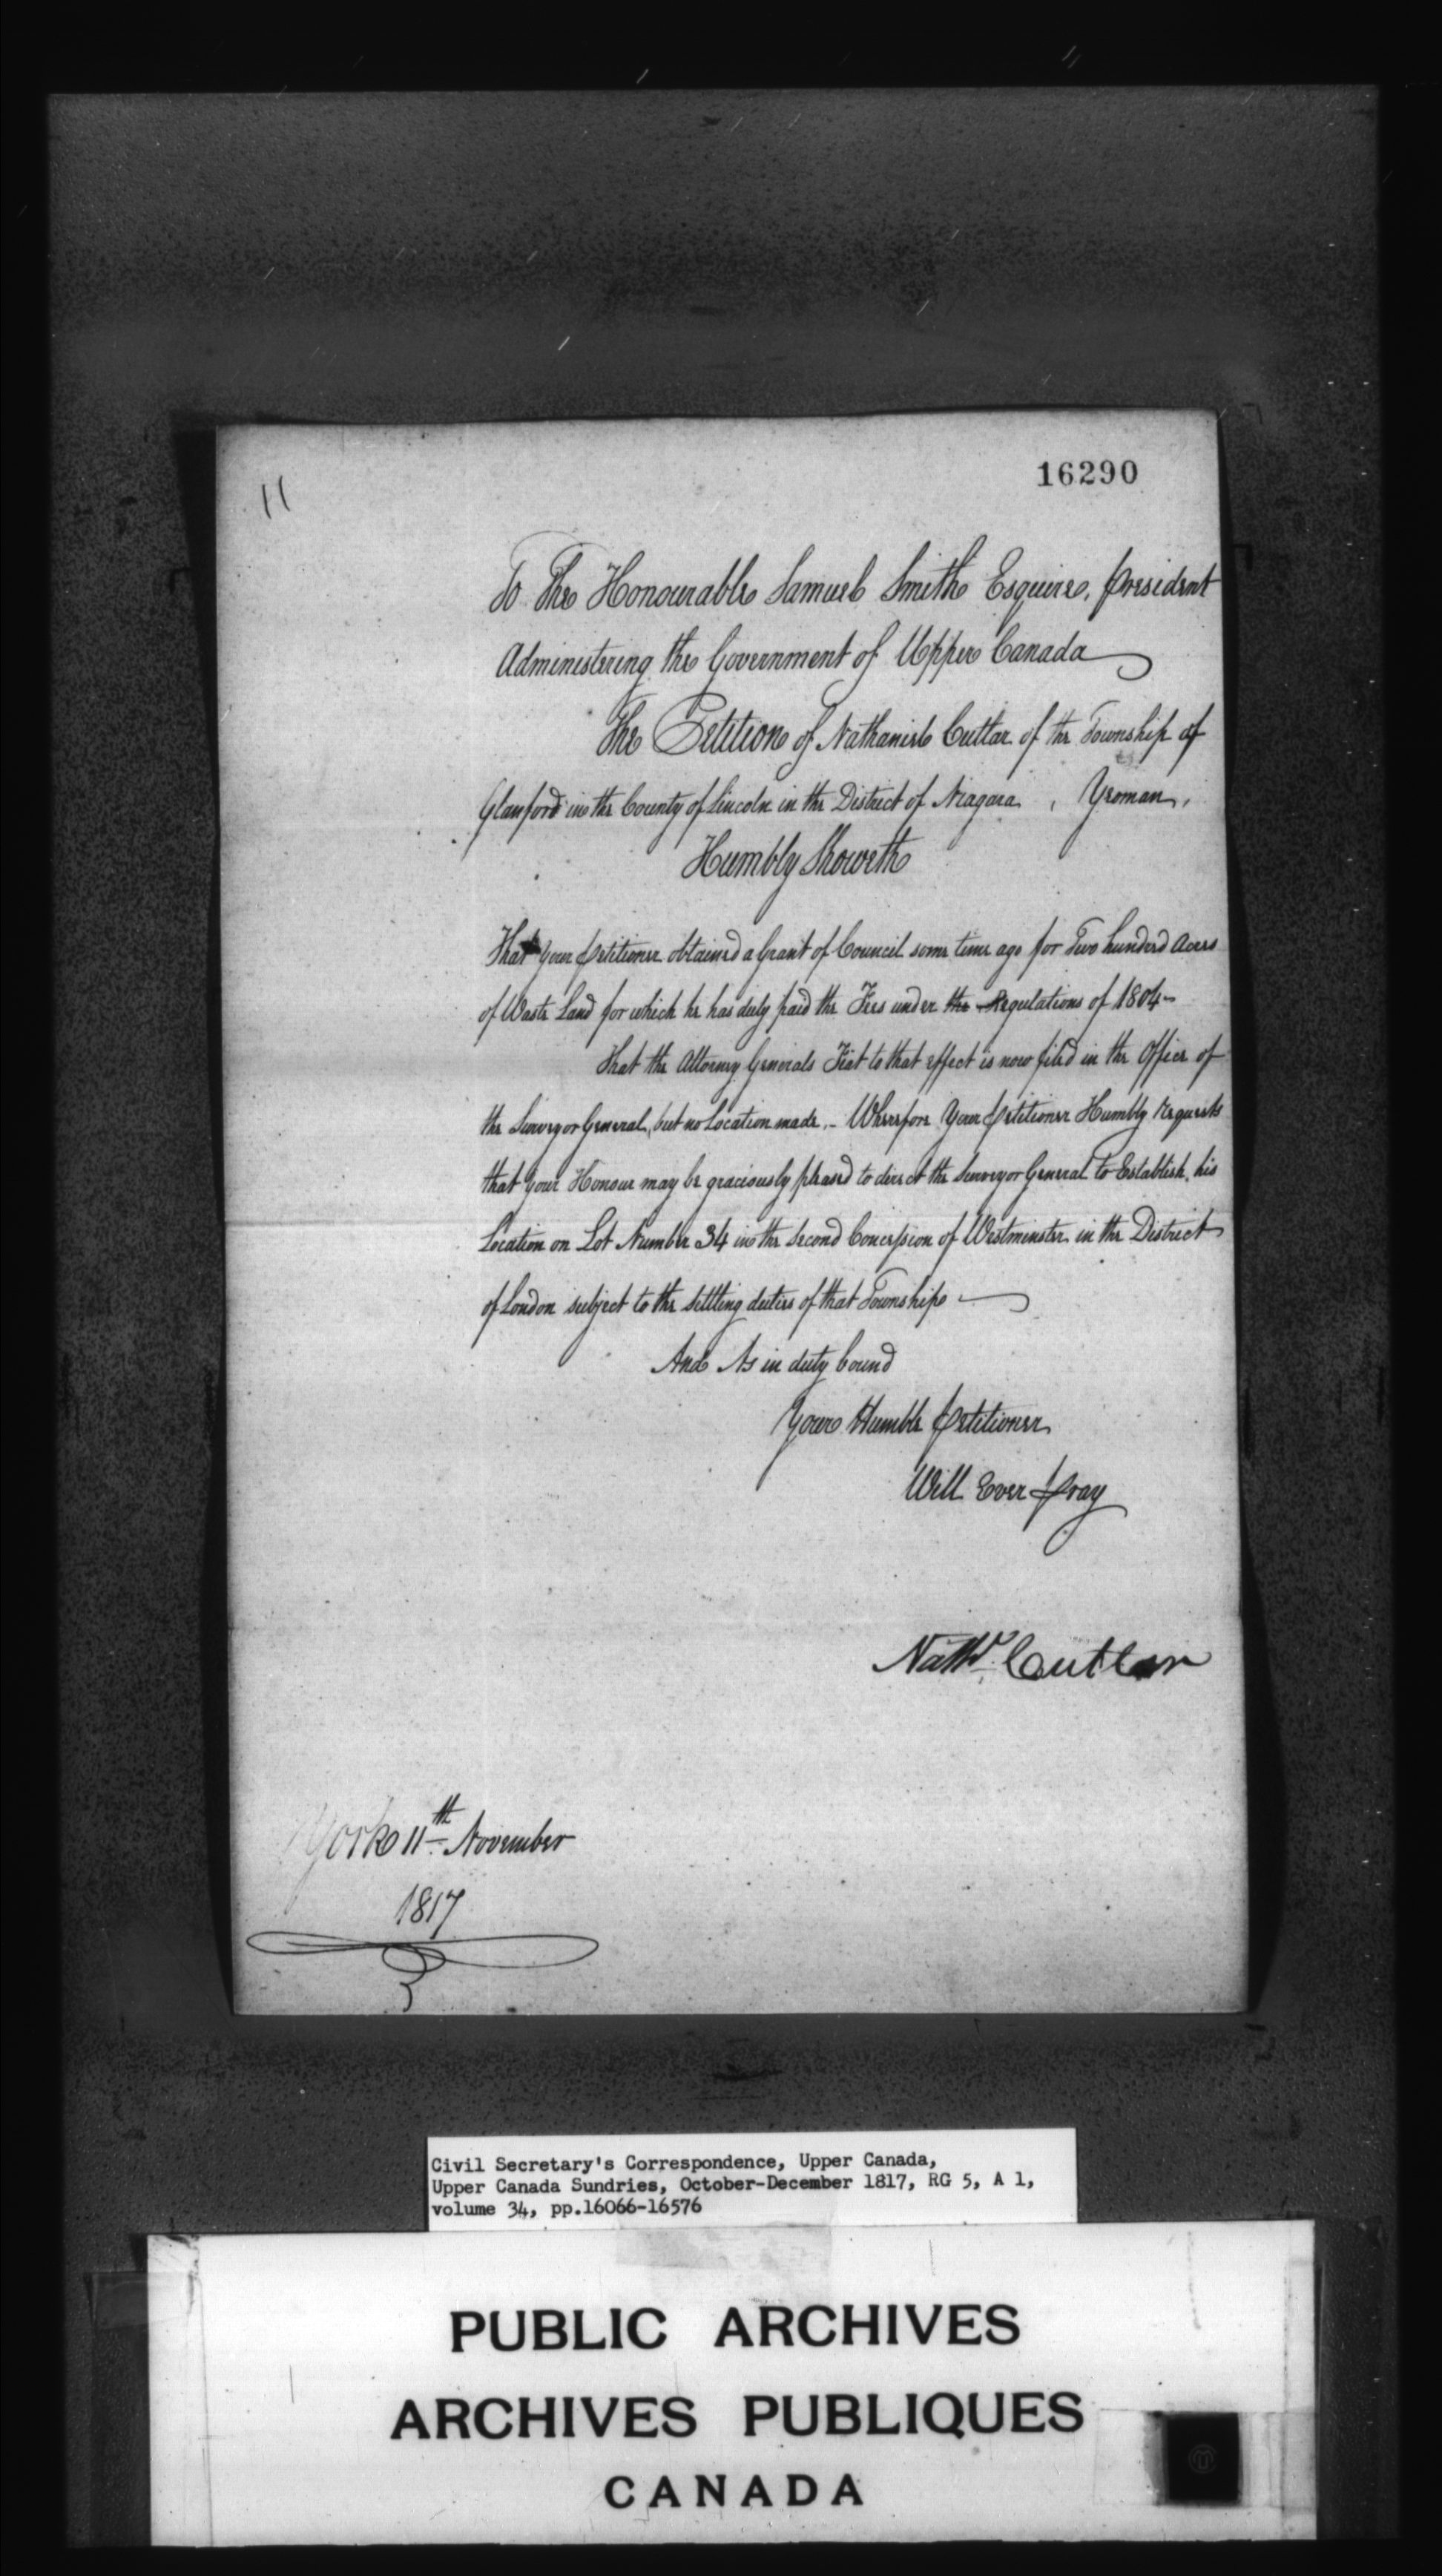 16290
11
To The Honourable Samuel Smith Esquire, President
Administering the Government of Upper Canada
The Petition of Nathaniel Cuttar of the Township of
Glanford in the County of Lincoln in the District of Niagara, Yeoman,
Humbly Showeth
That your petitioner obtained a Grant of Council some time ago for Two hundred Acres
of Waste Land for which he has duly paid the Fees under the Regulations of 1804-
That the Attorney Generals Fiat to that effect is now filed in the Office of
the Surveyor General, but no Location made.- Wherefore Your petitioner Humbly Requests
that your Honour may be graciously pleased to direct the Surveyor General to Establish his
Location on Lot Number 34 in the Second Concession of Westminster in the District
of London subject to the settling duties of that Township
And As in duty bound
Your Humble Petitioner
Will Ever Pray
Nathl. Cutlar
York 11th November
1817
Civil Secretary's Correspondence, Upper Canada,
Upper Canada Sundries, October-December 1817, RG 5, A 1,
volume 34, pp.16066-16576
PUBLIC ARCHIVES
ARCHIVES PUBLIQUES
CANADA